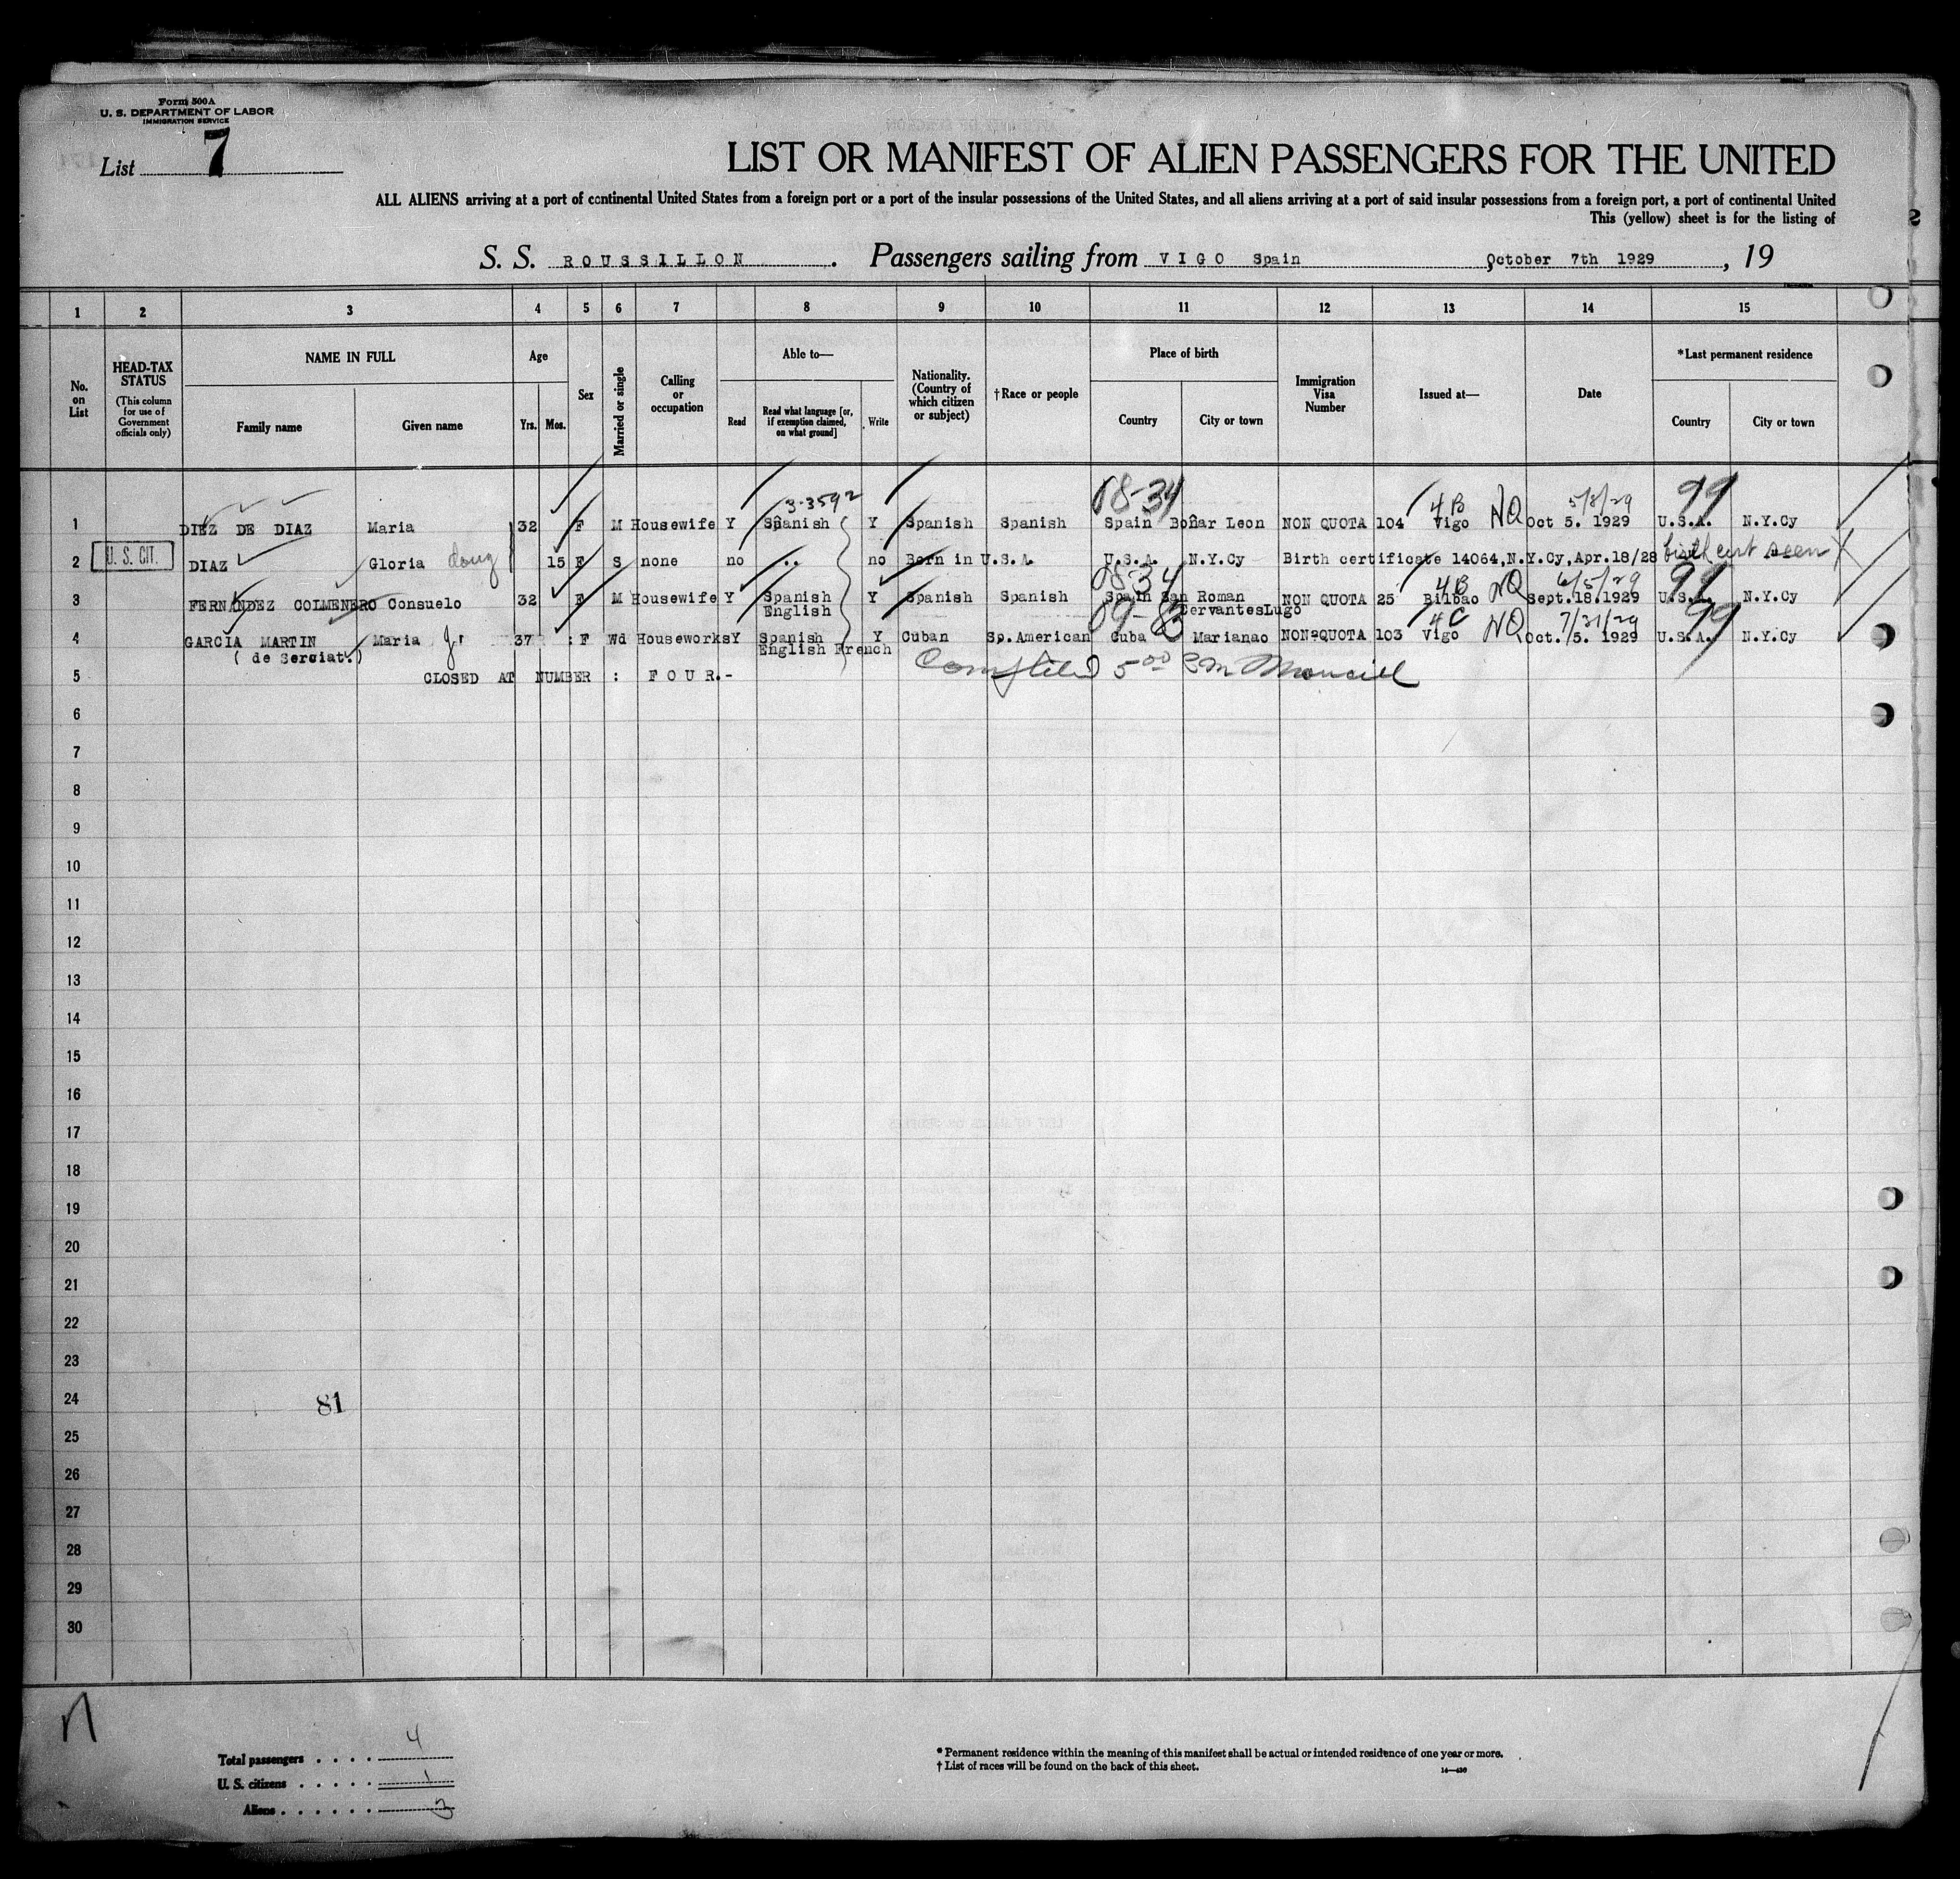 Form 500A
U. S. DEPARTMENT OF LABOR
IMMIGRATION SERVICE
List 7
LIST OR MANIFEST OF ALIEN PASSENGERS FOR THE UNITED
ALL ALIENS arriving at a port of continental United States from a foreign port or a port of the insular possessions of the United States, and all aliens arriving at a port of said insular possessions from a foreign port, a port of continental United
This (yellow) sheet is for the listing of
S. S. ROUSSILLON. Passengers sailing from VIGO Spain October 7th 1929, 19
1 2 3 4 5 6 7 8 9 10 11 12 13 14 15
No. on List
HEAD-TAX STATUS
(This column for use of Government officials only)
NAME IN FULL
Family name Given name
Age
Yrs. Mos.
Sex
Married or single
Calling or occupation
Able to—
Read
Read what language [or, if exemption claimed, on what ground]
Write
Nationality. (Country of which citizen or subject)
†Race or people
Place of birth
Country City or town
Immigration Visa Number
Issued at—
Date
*Last permanent residence
Country City or town
3-3592 08-34 4B 5/8/29 99
1 DIEZ DE DIAZ Maria 32 F M Housewife Y Spanish Y Spanish Spanish Spain Boñar Leon NON QUOTA 104 Vigo NQ Oct 5. 1929 U.S.A. N.Y.Cy
2 U. S. CIT. DIAZ Gloria daug 15 F S none no .. no Born in U.S.A. U.S.A. N.Y.Cy Birth certificate 14064,N.Y.Cy,Apr.18/28 birth cert seen
08-34 4B 6/5/29 99
3 FERNANDEZ COLMENERO Consuelo 32 F M Housewife Y Spanish Y Spanish Spanish Spain San Roman NON QUOTA 25 Bilbao NQ Sept.18.1929 U.S.A. N.Y.Cy
English CervantesLugo
4C 7/31/29 99
4 GARCIA MARTIN Maria 37 :F Wd Houseworks Y Spanish Y Cuban Sp.American Cuba Marianao NON-QUOTA 103 Vigo NQ Oct. 5. 1929 U.S.A. N.Y.Cy
( de Serciat.) English French
5 CLOSED AT NUMBER : FOUR.-
6
7
8
9
10
11
12
13
14
15
16
17
18
19
20
21
22
23
24
81
25
26
27
28
29
30
Total passengers . . . . 4
U. S. citizens . . . . . 1
Aliens . . . . . . 3
* Permanent residence within the meaning of this manifest shall be actual or intended residence of one year or more.
† List of races will be found on the back of this sheet.